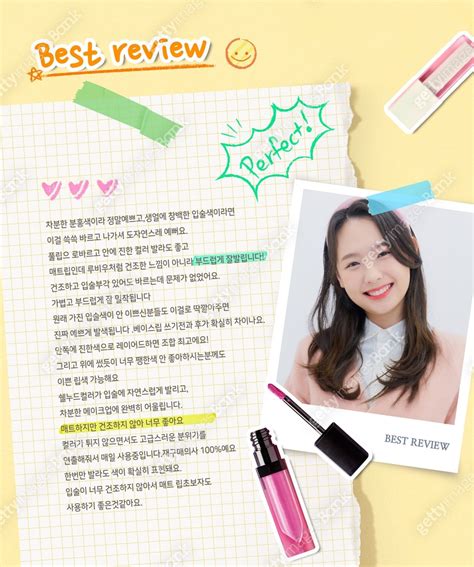 Best review
Perfect!
차분한 분홍색이라 정말예쁘고,생얼에 창백한 입술색이라면
이걸 쓱쓱 바르고 나가서 도자연스레 예뻐요.
풀립으로바르고 안에 진한 컬러 발라도 좋고
매트립인데 루비우처럼 건조한 느낌이 아니라 부드럽게 잘발립니다!
건조하고 입술부각 있어도 바르는데 문제가 없었어요.
가볍고 부드럽게 잘 밀착됩니다
원래 가진 입술색이 안 이쁘신분들도 이걸로 딱깔아주면
진짜 예쁘게 발색됩니다.베이스립 쓰기전과 후가 확실히 차이나요.
단독에 진한색으로 레이어드하면 조합 최고예요!
그리고 위에 썼듯이 너무 쨍한색 안 좋아하시는분께도
이쁜 립색 가능해요
쉘누드컬러가 입술에 자연스럽게 발리고,
차분한 메이크업에 완벽히 어울립니다.
매트하지만 건조하지 않아 너무 좋아요
컬러가 튀지 않으면서도 고급스러운 분위기를
연출해줘서 매일 사용중입니다.재구매의사 100%예요
한번만 발라도 색이 확실히 표현돼요.
입술이 너무 건조하지 않아서 매트 립초보자도
사용하기 좋은것같아요.
BEST REVIEW
gettyimagesBank